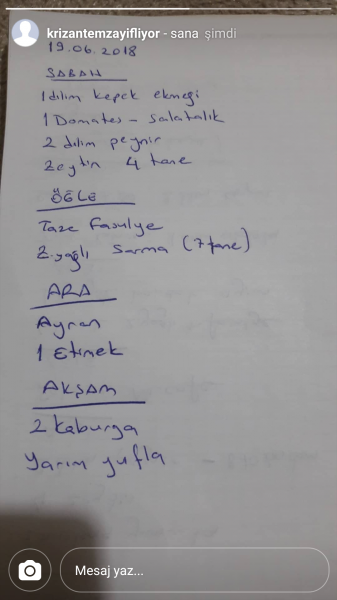 krizantemzayifliyor - sana şimdi
19.06.2018
SABAH
1 dilim kepek ekmeği
1 Domates - salatalık
2 dilim peynir
Zeytin 4 tane
ÖĞLE
Taze Fasulye
Z.yağlı sarma (7 tane)
ARA
Ayran
1 Etimek
AKŞAM
2 kaburga
Yarım yufka
Mesaj yaz...